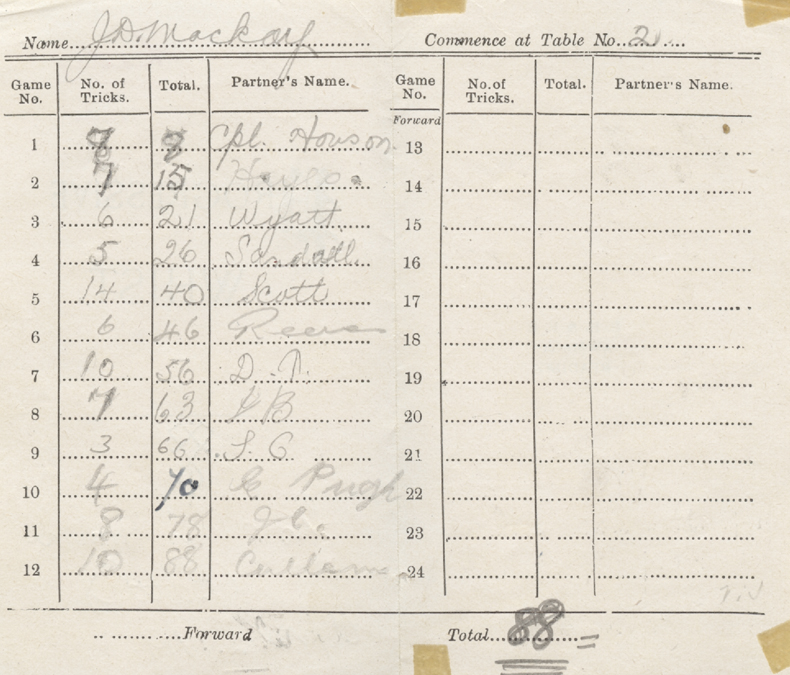 Name J D Mackay Commence at Table No. 2
Game No. No. of Tricks. Total. Partner's Name. Game No. No. of Tricks. Total. Partner's Name.
Forward
1 8 8 Cpl. Howson 13
2 7 15 14
3 6 21 Wyatt 15
4 5 26 Sandall 16
5 14 40 Scott 17
6 6 46 Reeves 18
7 10 56 19
8 7 63 20
9 3 66 21
10 4 70 Pugh 22
11 8 78 23
12 10 88 24
Forward Total 88